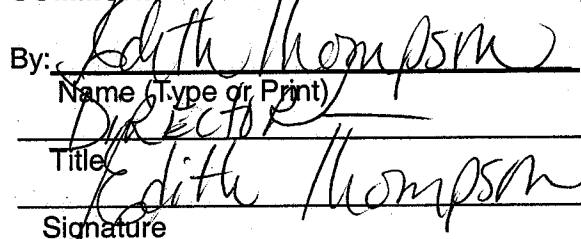 By: Edith Thompson
Name (Type or Print)
DIRECTOR
Title
Edith Thompson
Signature